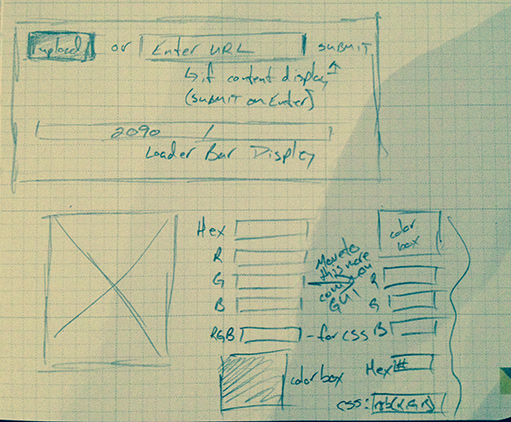 upload or Enter URL submit
↳ if content display ↑
(submit on Enter)
20%
Loader Bar Display
Hex
R
G
B
RGB - for css
color box
Move to this more common GUI
color box
R
G
B
Hex #
css: rgb(R,G,B)